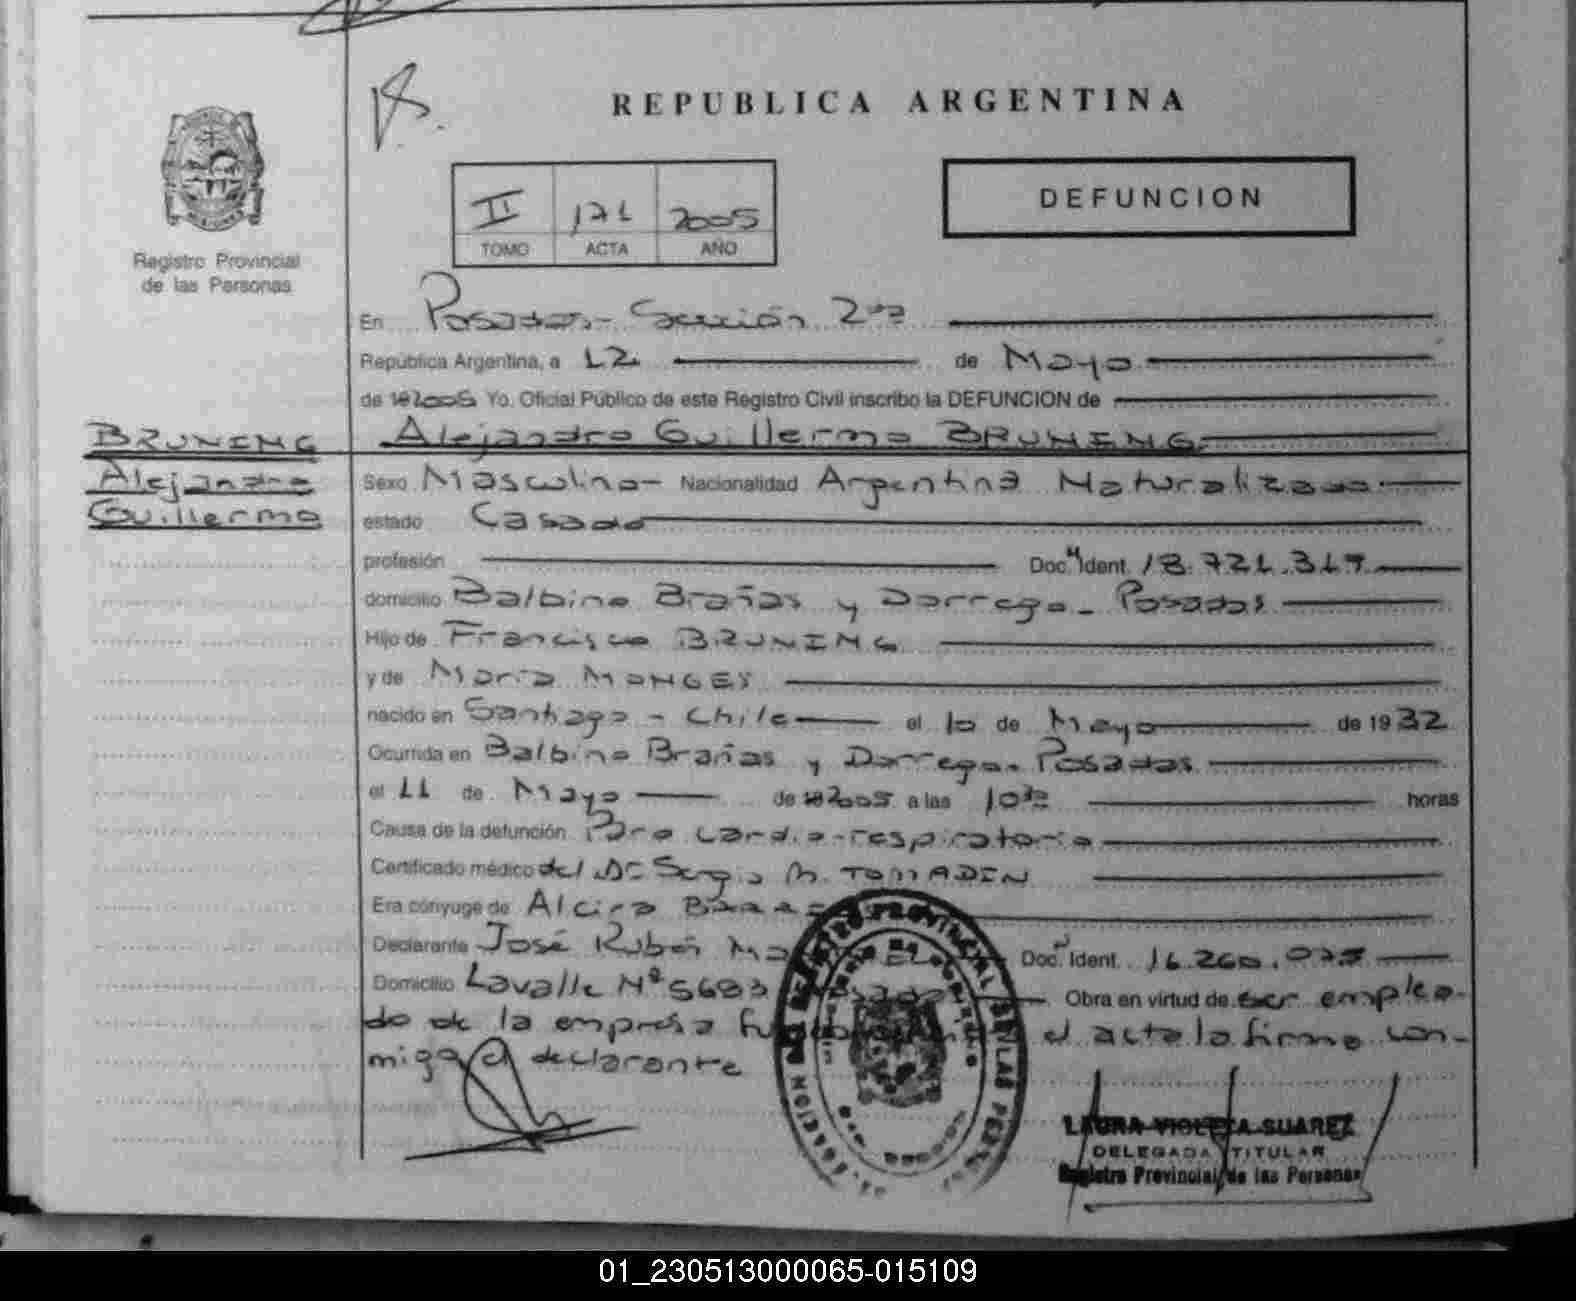 REPUBLICA ARGENTINA
DEFUNCION
II 171 2005
TOMO ACTA AÑO
Registro Provincial
de las Personas
En Posadas - Sección 2da
República Argentina, a 12 de Mayo
de 2005 Yo, Oficial Público de este Registro Civil inscribo la DEFUNCION de
BRUNING
Alejandro
Guillermo
Alejandro Guillermo BRUNING
Sexo Masculino - Nacionalidad Argentina Naturalizado
estado Casado
profesión Doc. Ident. 18.721.317
domicilio Balbino Brañas y Dorrego - Posadas
Hijo de Francisco BRUNING
y de María MANGEY
nacido en Santiago - Chile el 10 de Mayo de 1932
Ocurrida en Balbino Brañas y Dorrego - Posadas
el 11 de Mayo de 2005 a las 10 horas
Causa de la defunción Paro cardio-respiratorio
Certificado médico del Dr Sergio M. TOMADIN
Era cónyuge de Alcira
Declarante José Rubén Doc. Ident. 16.260.075
Domicilio Lavalle Nº 5683 Obra en virtud de ser emplea-
do de la empresa el acta la firma con-
migo el declarante
LAURA VIOLETA SUAREZ
DELEGADA TITULAR
Registro Provincial de las Personas
01_230513000065-015109